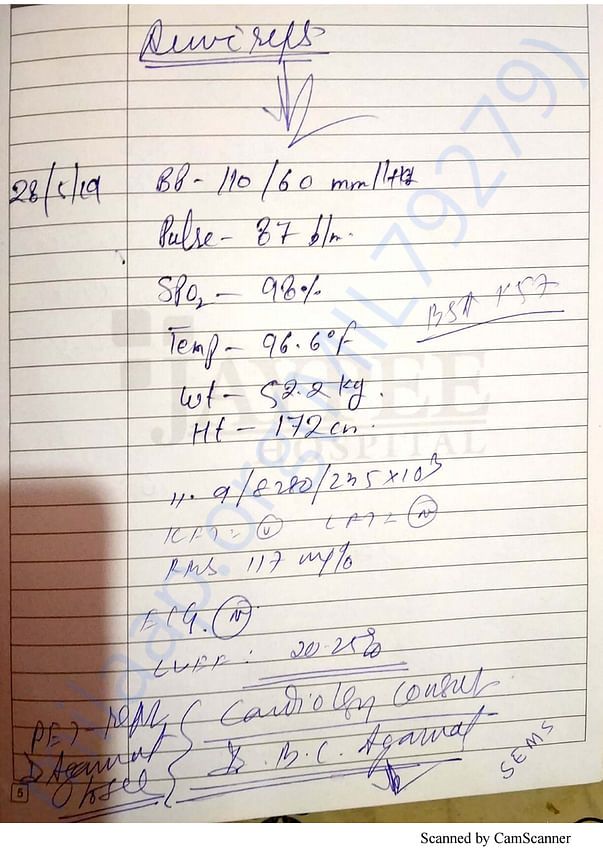 28/5/19 BP - 110/60 mm/Hg
Pulse - 87 b/m.
SPO2 - 98%
BSA 1.57
Temp - 96.6°F
JAYPEE
Wt - 52.2 kg.
HOSPITAL
Ht - 172 cm.
H. 9/8280/235x10³
KFT = N LFT = N
RBS 117 mg%
ECG. N
LVEF: 20-25%
Cardiology consult
PET-
Dr. B.C. Agarwal
Dr Agarwal
5
Scanned by CamScanner